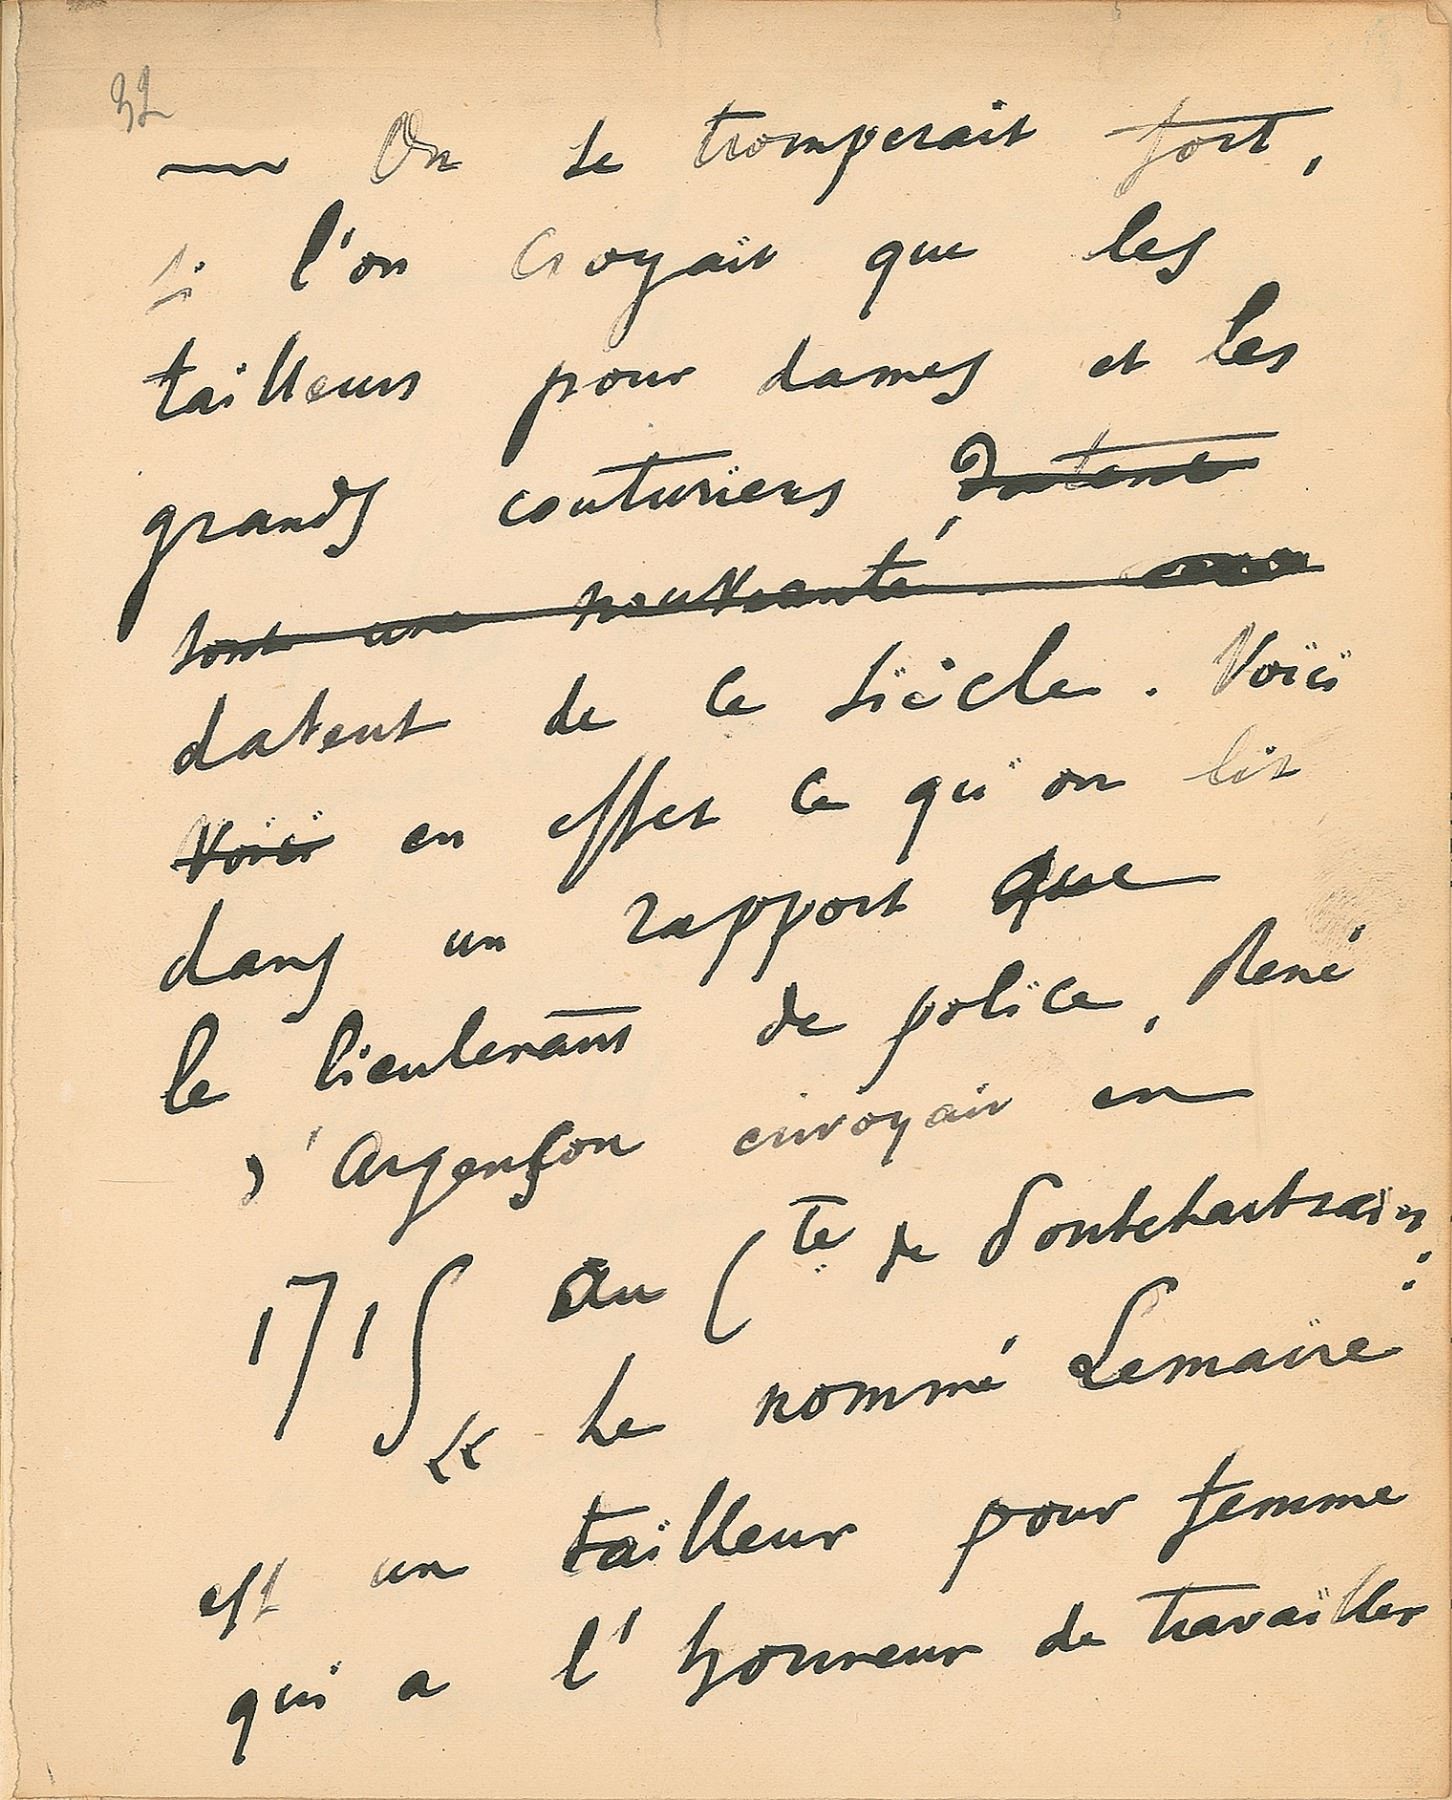 32
— On se tromperait fort,
si l'on croyait que les
tailleurs pour dames et les
grands couturiers, datent
sont une nouveauté
datent de ce siècle. Voici
Voici en effet ce qu'on lit
dans un rapport que
le lieutenant de police, René
d'Argenson envoyait en
1715 au Cte de Pontchartrain :
« Le nommé Lemaire
est un tailleur pour femme
qui a l'honneur de travailler